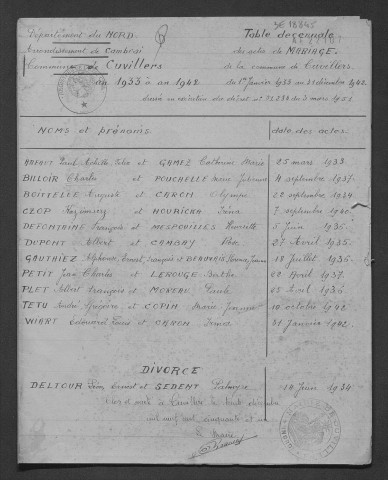 Département du NORD.
Arrondissement de Cambrai
Commune de Cuvillers
an 1933 à an 1942
Table décennale
des actes de MARIAGE
de la commune de Cuvillers.
du 1er Janvier 1933 au 31 décembre 1942.
dressée en exécution du décret du 3 mars 1951
NOMS et prénoms. date des actes.
Paul Achille Jules et GAMEZ Catherine Marie 25 mars 1933.
BILLOIR Charles et POUCHELLE Marie 4 septembre 1937.
BOITTELLE Auguste et CARON Olympe 22 septembre 1934
CZOP et NOURICHA Irena 7 septembre 1940.
DEFONTAINE François et MESPOUILLES Henriette 5 Juin 1936.
DUPONT Albert et CAMBAY 27 Avril 1935.
GAUTHIEZ Alphonse Ernest François et BEAUVAIS 18 Juillet 1936.
PETIT Jean Charles et LEROUGE Berthe 02 Avril 1937.
PLET Albert François et MOREAU Paule 25 Avril 1936.
TETU André Grégoire et COPIN Marie 10 octobre 1942.
WIART Edouard Louis et CARON Irma 31 Janvier 1942.
DIVORCE
DELTOUR Ernest et SEDENT Palmyre 14 Juin 1934
Cuvillers le trente décembre
mil neuf cent cinquante et un
Maire